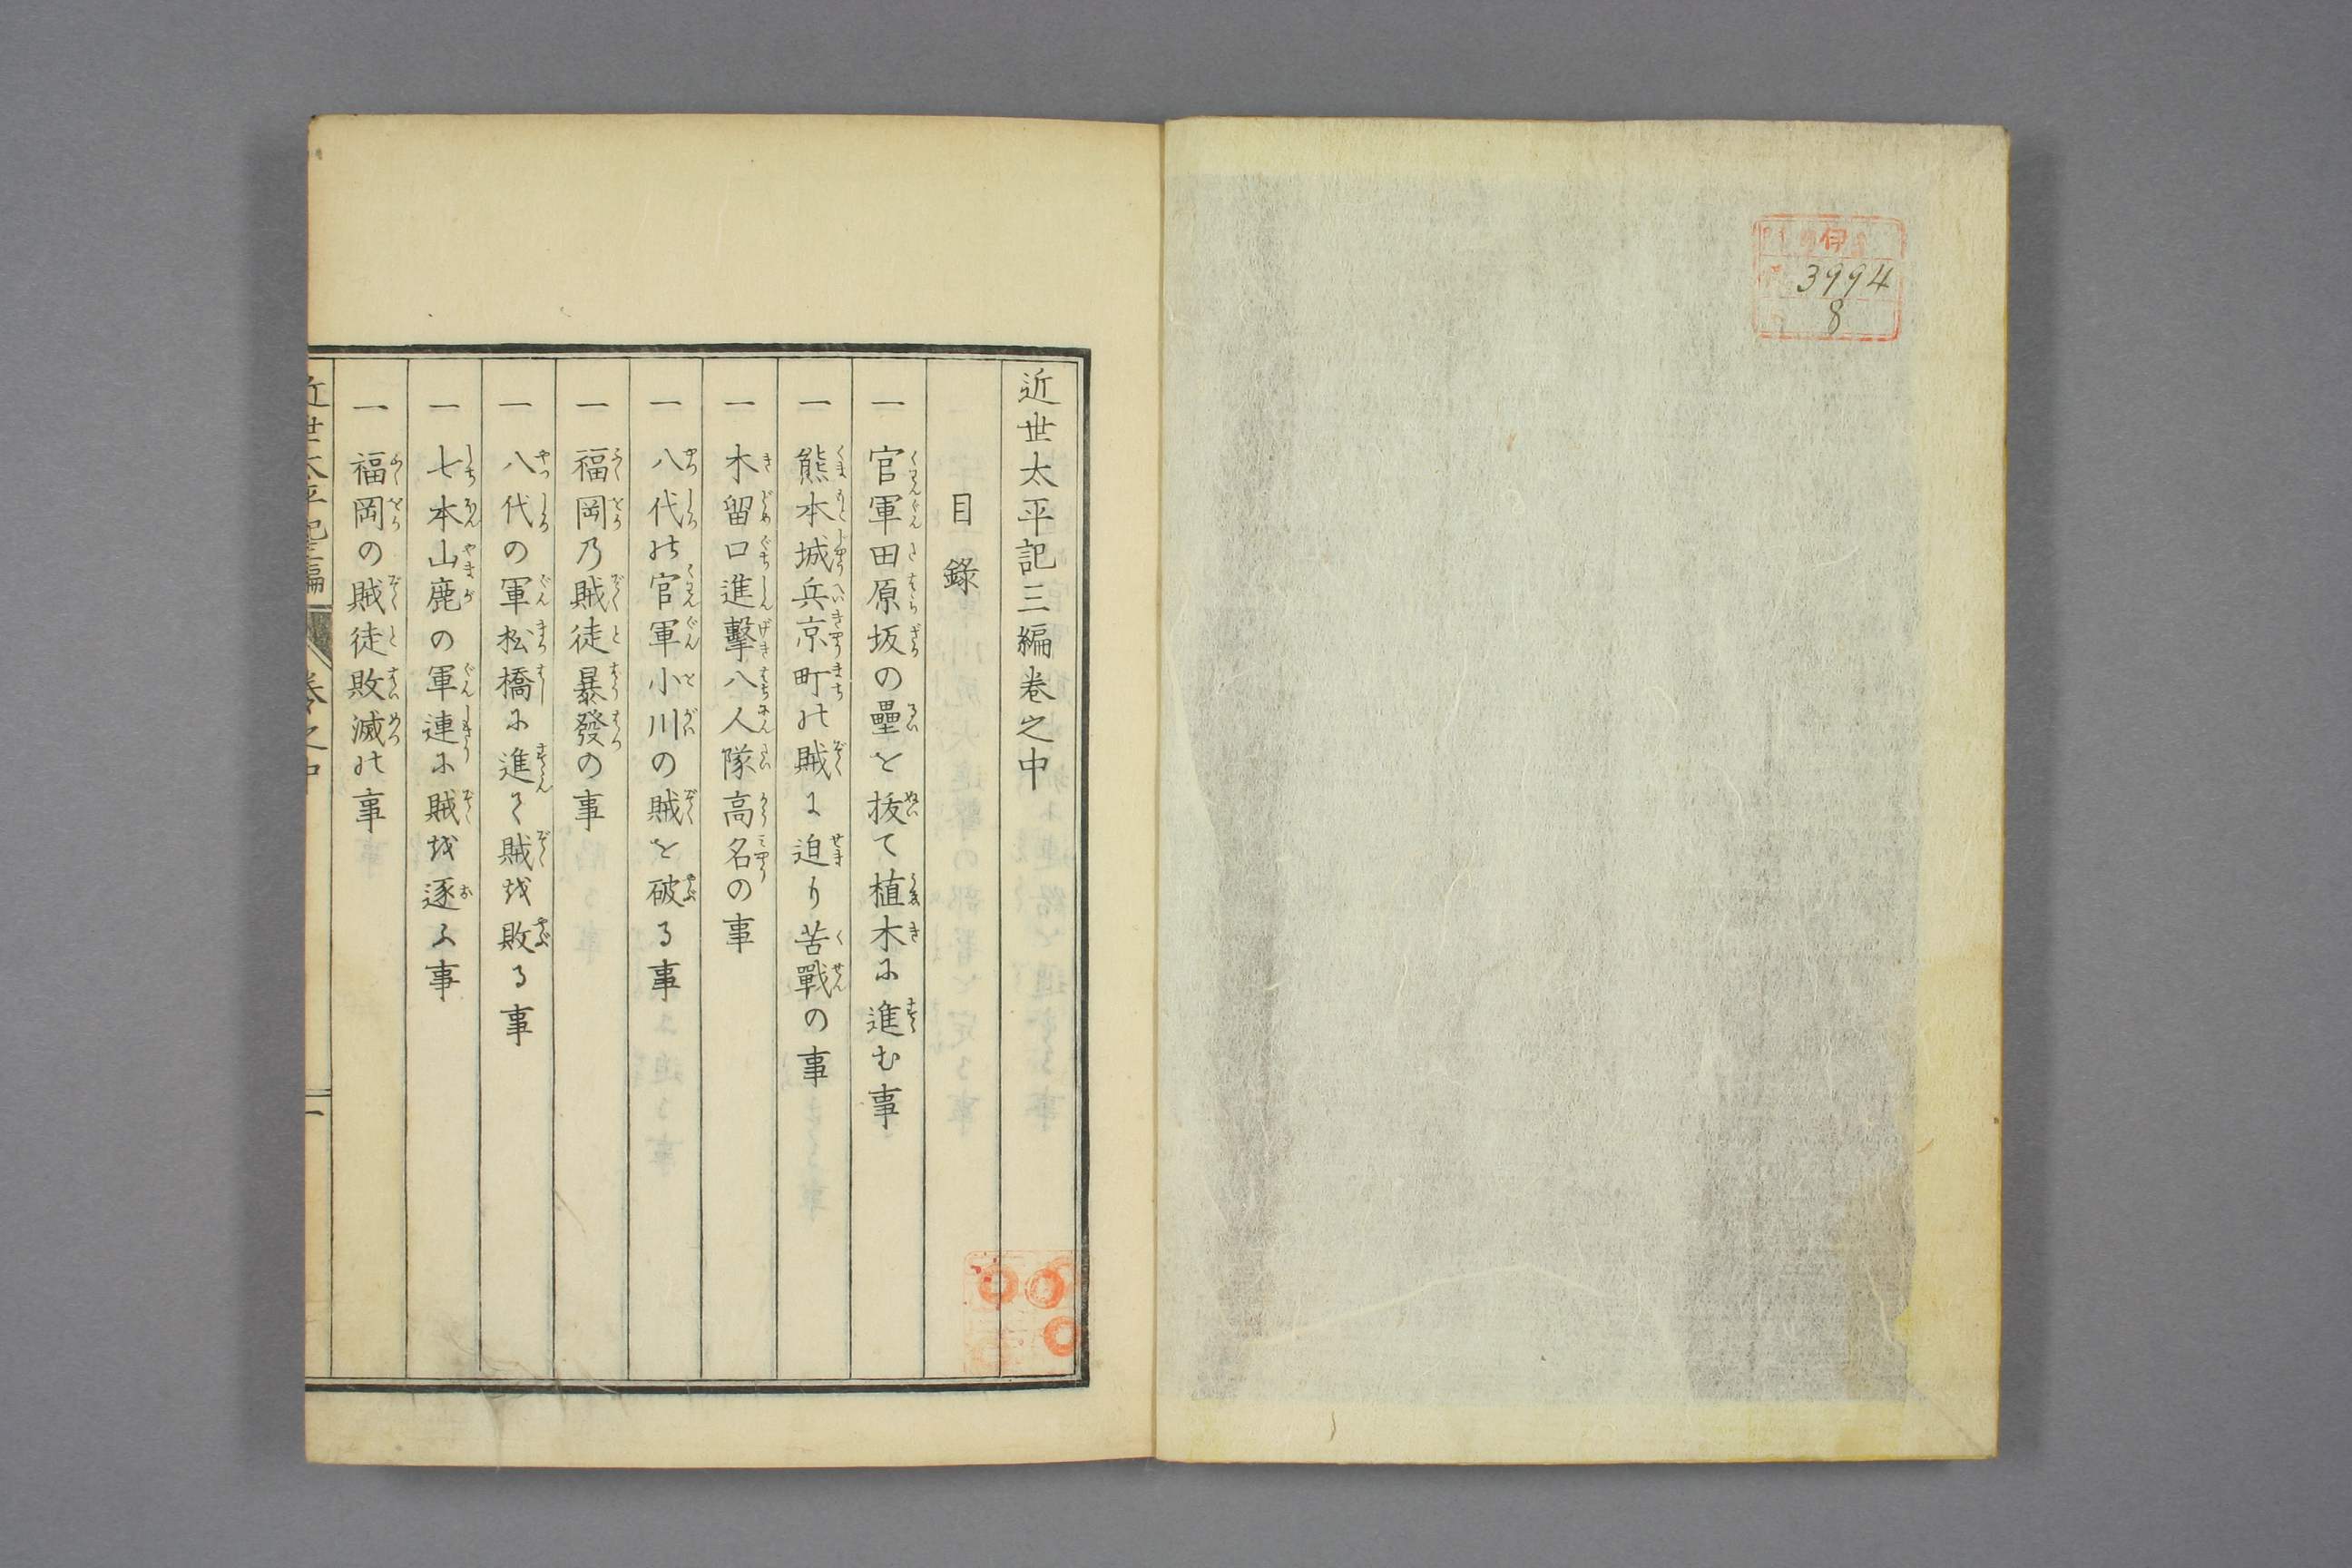 伊
3994
8
近世太平記三編巻之中
目錄
一 官軍田原坂の壘を抜て植木に進む事
一 熊本城兵京町の賊に迫り苦戰の事
一 木留口進擊八人隊高名の事
一 八代の官軍小川の賊を破る事
一 福岡乃賊徒暴發の事
一 八代の軍松橋に進て賊を敗る事
一 七本山鹿の軍連に賊を逐ふ事
一 福岡の賊徒敗滅の事
近世太平記三編 巻之中 一